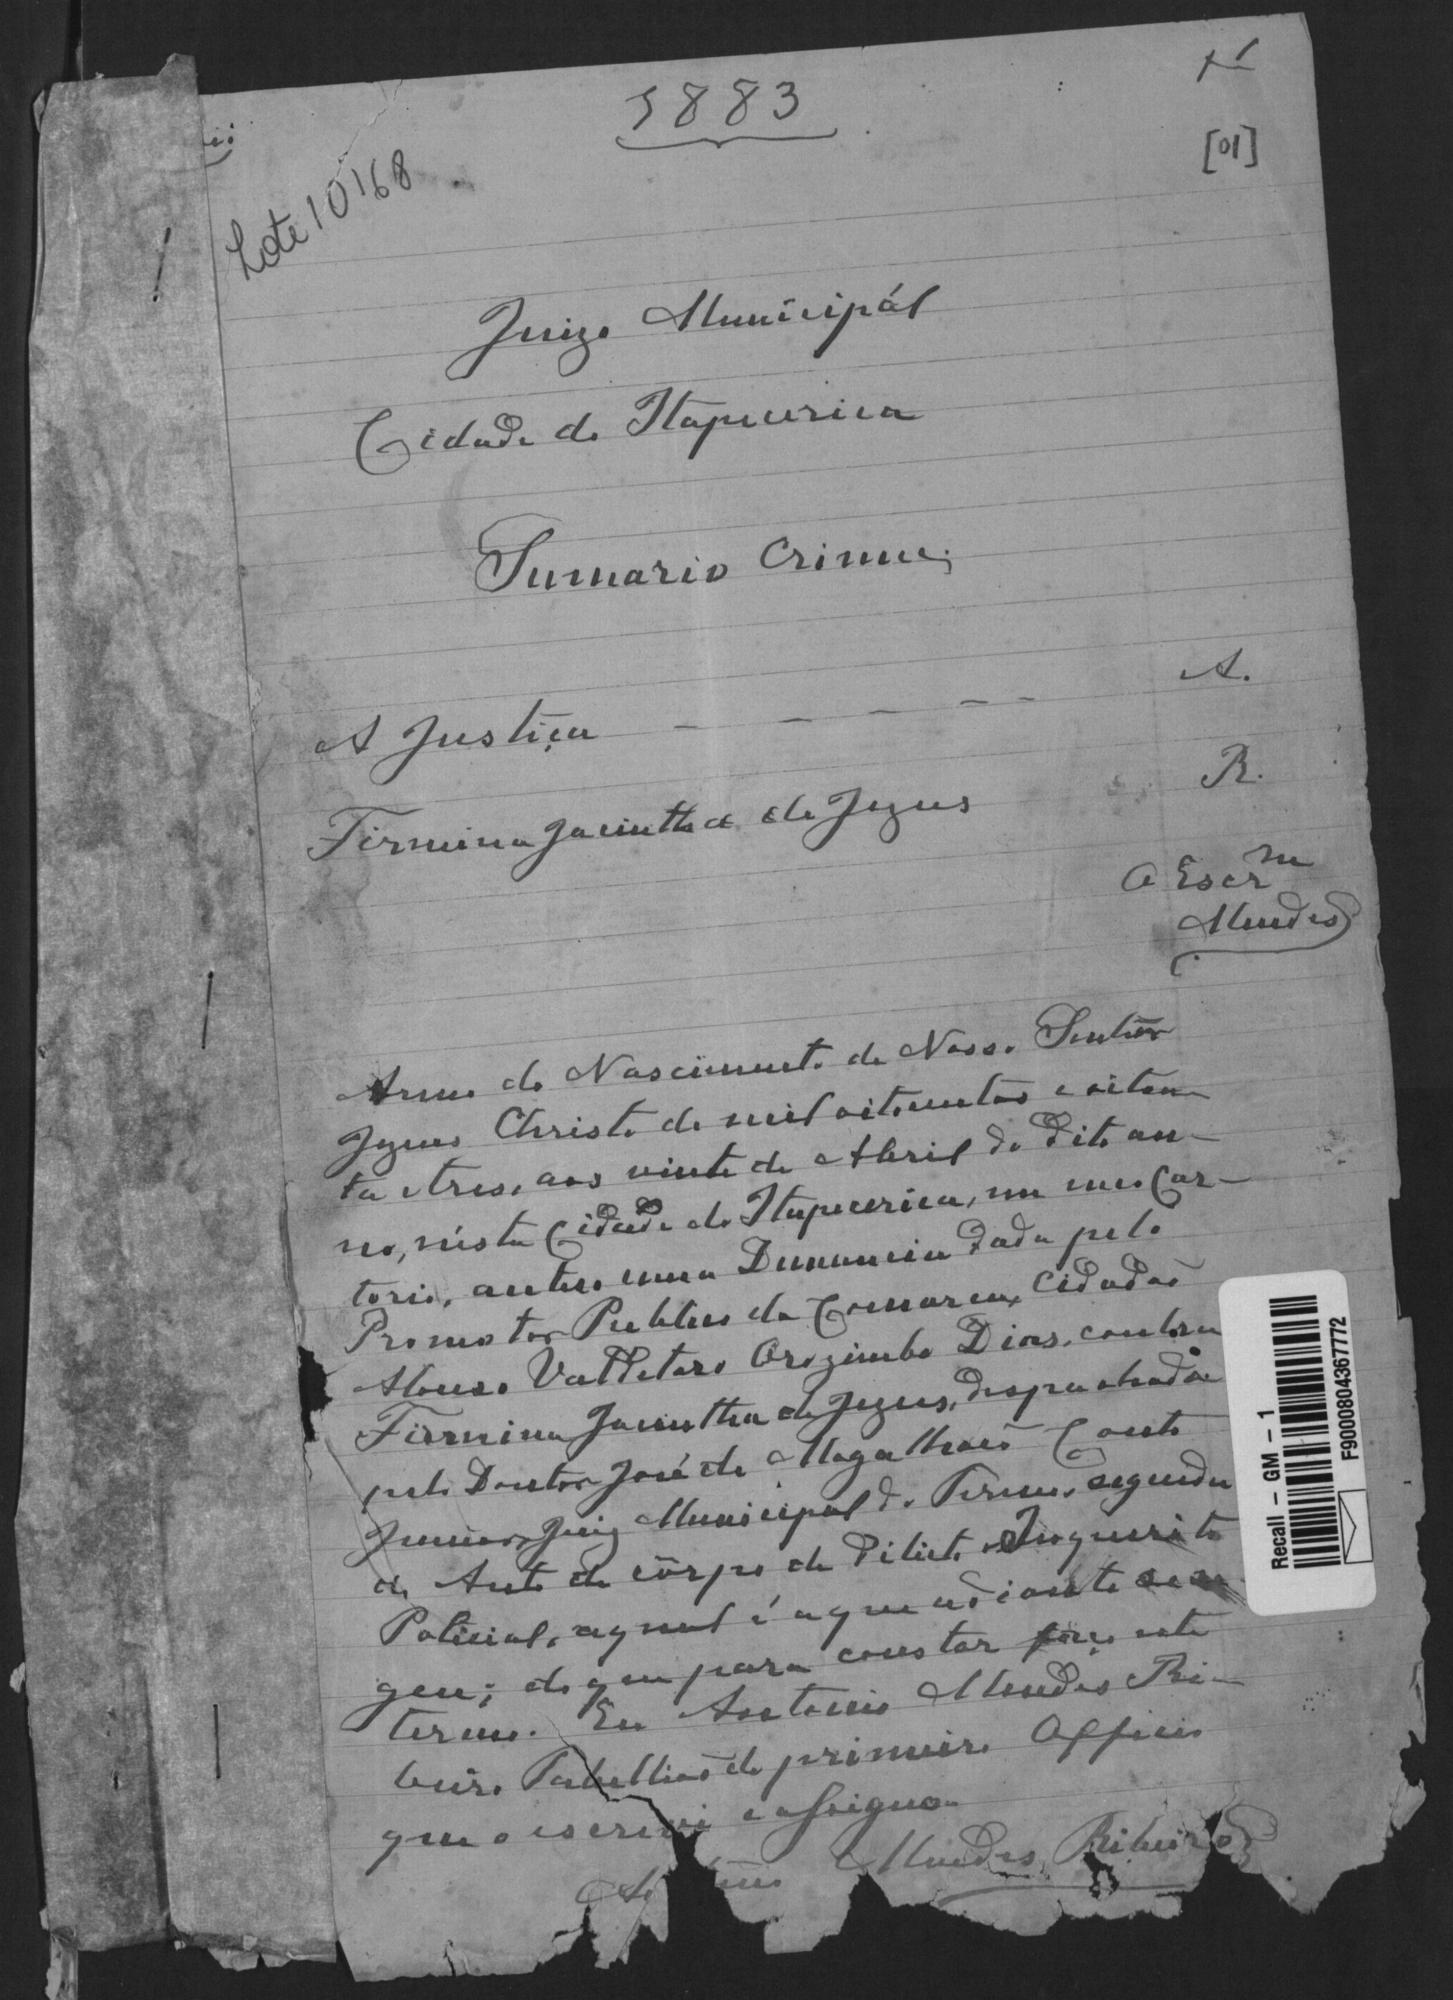 1883
[01]
Lote 10168
Juizo Municipál
Cidade de Itapecerica
Sumario Crime,
A.
A Justiça
R.
Firmina Jacintha de Jezus
O Escr^m
Mendes
Anno do Nascimento de Nosso Senhor
Jezus Christo de mil oitocentos e oiten-
ta e tres, aos vinte de Abril do dito an-
no, nésta Cidade de Itapecerica, em meo Car-
torio, autuo uma Denuncia dada pelo
Promotor Publico da Comarca, cidadaõ
Orozimbo Dias, contra
Firmina Jacintha de Jezus, despachada
pelo Doutor José de Magalhaes Couto
Junior, Juiz Municipal do Termo, seguida
do Auto de côrpo de dilicto e Inquerito
Policial, a qual é a que adiante se
gue; do que para constar faço este
termo. Eu Antonio Mendes Ri-
beiro Tabelliaõ do primeiro Officio
que o escrevi e assigno
Mendes Ribeiro
Recall – GM – 1
F9000804367772